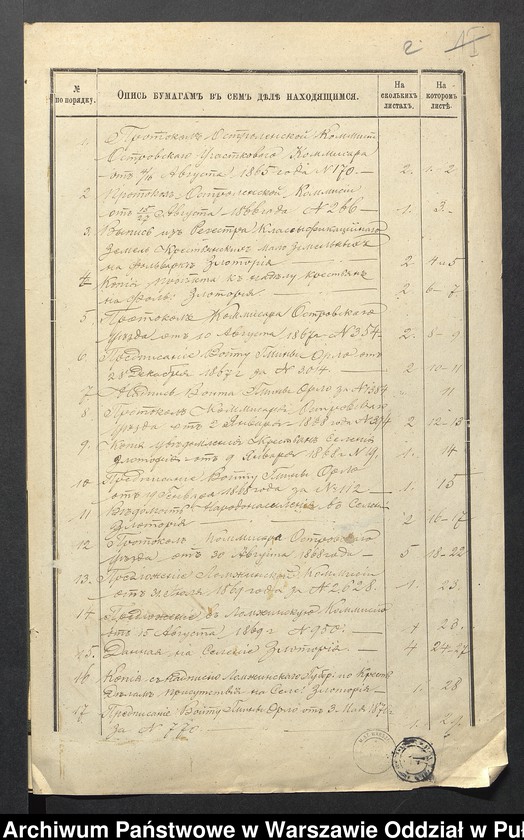 2
№ по порядку.
Опись бумагамъ въ семъ дѣлѣ находящимся.
На сколькихъ листахъ.
На которомъ листѣ.
1 Протоколъ Остроленской Коммис
Островскаго Участковаго Коммисара
отъ Августа 1865 года N 170. — 2. 1-2
2 Протоколъ Остроленской Коммисіи
отъ 15/27 Августа 1866 года N 266 — 1. 3.
3. Выпись изъ Регестра Классыфикаційнаго
Земель Крестьянскихъ мало земельныхъ
на Фольваркъ Злоторія — 2 4-5
4 Копія проэкта къ надѣлу крестьянъ
на фоль. Злоторія — 2 6-7
5. Протоколъ Коммисара Островскаго
уѣзда отъ 10 Августа 1867 N 354 — 2. 8-9
6. Предписаніе Войту Гмины Орло отъ
28 Декабря 1867 г за N 304 — 2 10-11
7 Надпись Войта Гмины Орло за N 1384 — 11
8 Протоколъ Коммисара Островскаго
уѣзда отъ 2 Января 1868 года N 374 2 12-13
9. Копія увѣдомленія крестьянъ селенія
Злоторія отъ 9 Января 1868 N 19. 1. 14
10 Предписаніе Войту Гмины Орло
отъ 9 Января 1868 года за N 112 — 1. 15
11 Вѣдомость Народонаселенія въ Селеніи
Злоторія — 2 16-17
12 Протоколъ Коммисара Островскаго
уѣзда отъ 30 Августа 1868 года — 5 18-22
13. Предложеніе Ломжинской Коммисіи
отъ Іюля 1869 года за N 2628. 1. 23.
14 въ Ломжинскую Коммисію
отъ 15 Августа 1869 г N 950. — 1 23.
15. Данная на Селеніе Злоторія. — 4 24-27
16 Копія съ Надписи Ломжинскаго Губер. по Крест.
дѣламъ присутствія на Селе. Злоторія — 1. 28
17 Предписаніе Войту Гмины Орло отъ 3 Мая 187
за N 770 — 1. 29.
Archiwum Państwowe w Warszawie Oddział w Puł